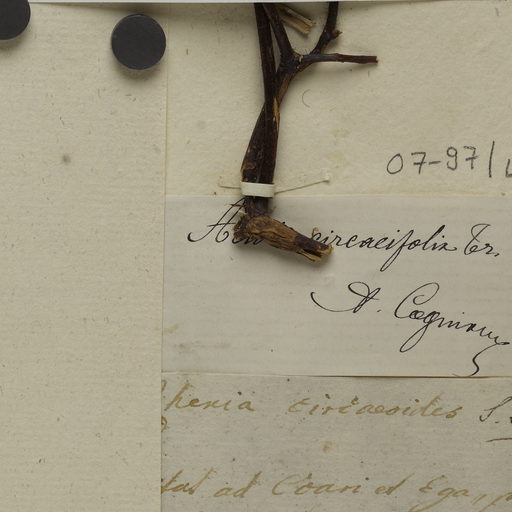 07-97/
circaeifolia Tr.
A. Cogniaux
circaeoides S.
ad Coari et Ega,